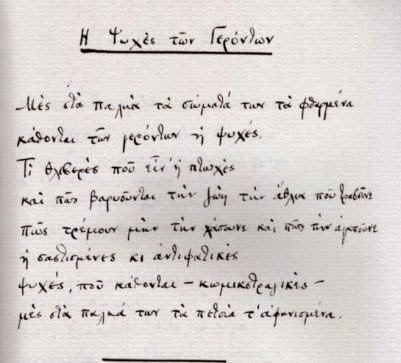 Η Ψυχὲς τῶν Γερόντων
Μὲς στὰ παληὰ τὰ σώματά των τὰ φθαρμένα
κάθονται τῶν γερόντων ἡ ψυχές.
Τί θλιβερὲς ποῦ εἶν' ἡ πτωχὲς
καὶ πῶς βαρυοῦνται τὴν ζωὴ τὴν ἄθλια ποῦ τραβοῦνε
πῶς τρέμουν μὴν τὴν χάσουνε καὶ πῶς τὴν ἀγαποῦνε
ἡ σαστισμένες κι ἀντιφατικὲς
ψυχές, ποῦ κάθονται – κωμικοτραγικὲς –
μὲς στὰ παληά των τὰ πετσιὰ τ' ἀφανισμένα.